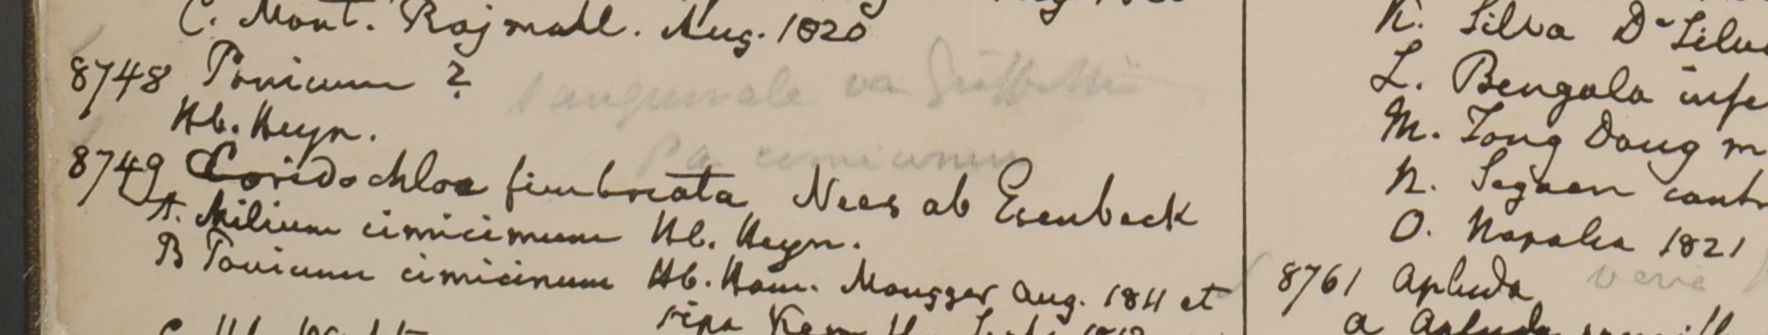 C. Mont. Rajmahl. Aug. 1820
8748 Panicum ? sanguinale va Griffithii
Hb. Heyn.
Pa cimicinum
8749 Coridochloa fimbriata Nees ab Esenbeck
A. Milium cimicinum Hb. Heyn.
B Panicum cimicinum Hb. Ham. Mongger Aug. 1811 et
ripa
K. Silva De Silva
L. Bengala infe
M. Tong Doug m
N. Segaen
O. Napalia 1821
8761 Apluda
a Apluda